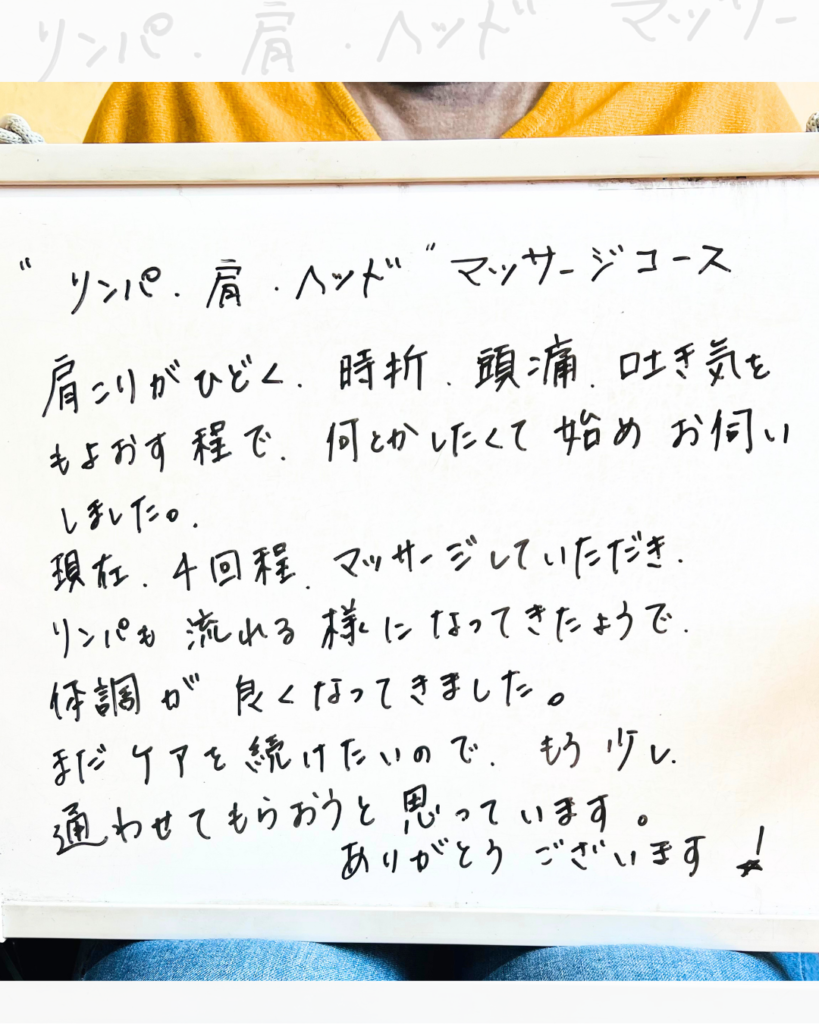 リンパ・肩・ヘッド マッサー
"リンパ・肩・ヘッド"マッサージコース
肩こりがひどく、時折、頭痛、吐き気を
もよおす程で、何とかしたくて始めお伺い
しました。
現在、4回程、マッサージしていただき、
リンパも流れる様になってきたようで、
体調が良くなってきました。
まだケアを続けたいので、もう少し、
通わせてもらおうと思っています。
ありがとうございます!